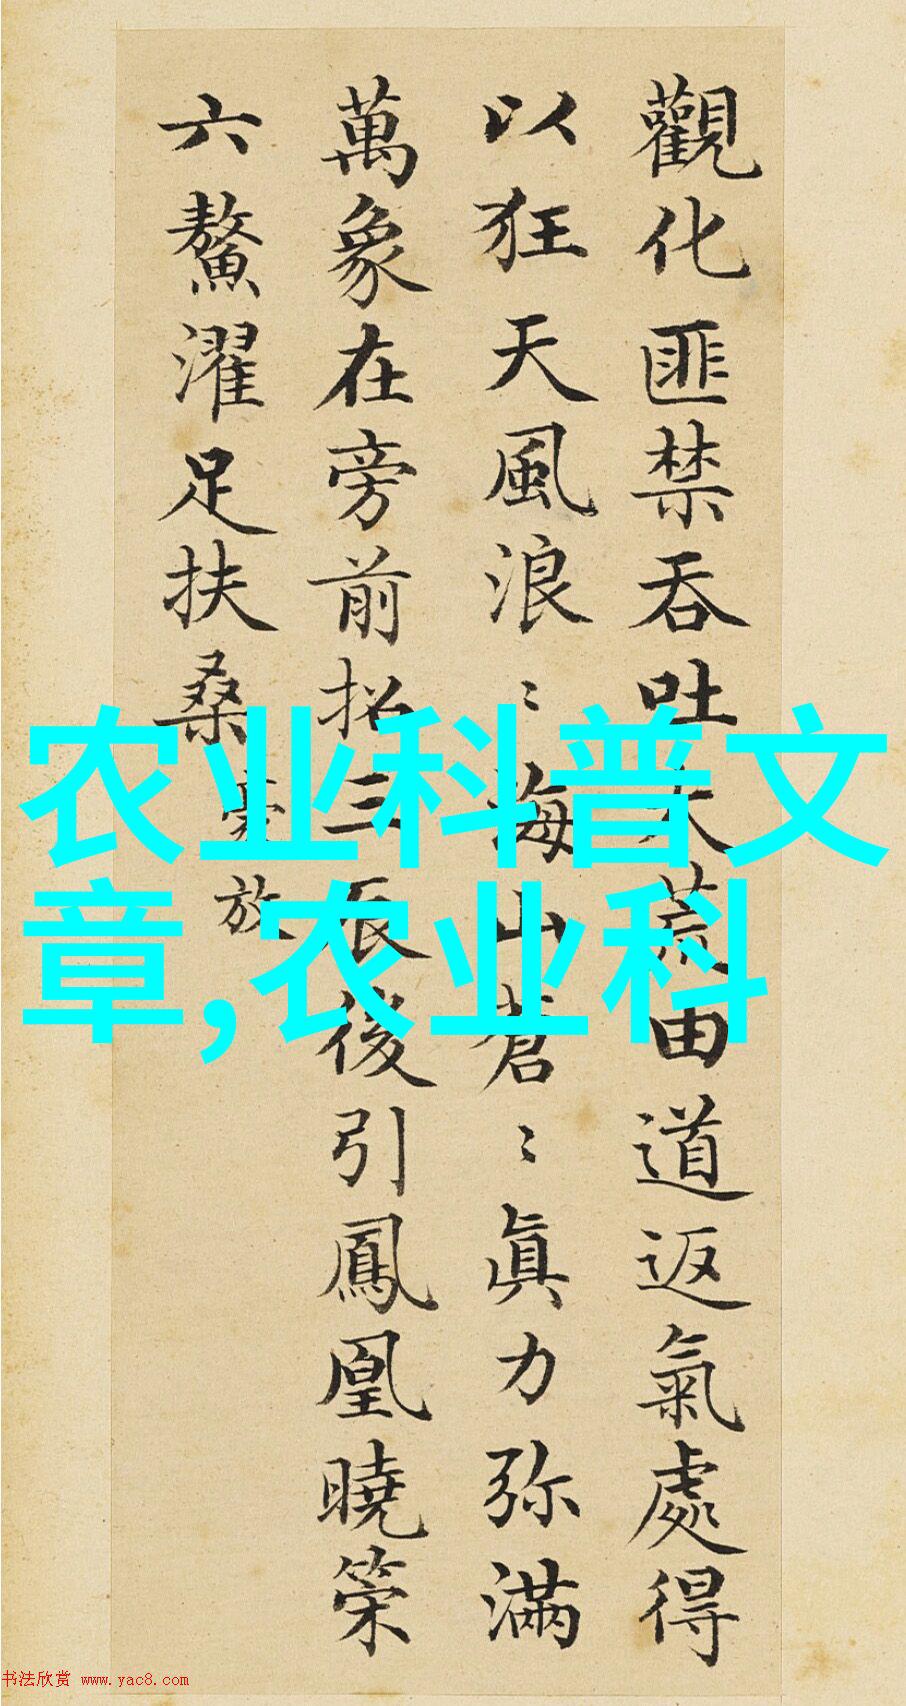 觀化匪禁吞吐大荒由道返氣處得
以狂天風浪〻海山蒼〻眞力弥滿
萬象在旁前招三辰後引鳳凰曉策
六鰲濯足扶桑
豪放
农业科普文
章,农业科
书法欣赏 www.yac8.com